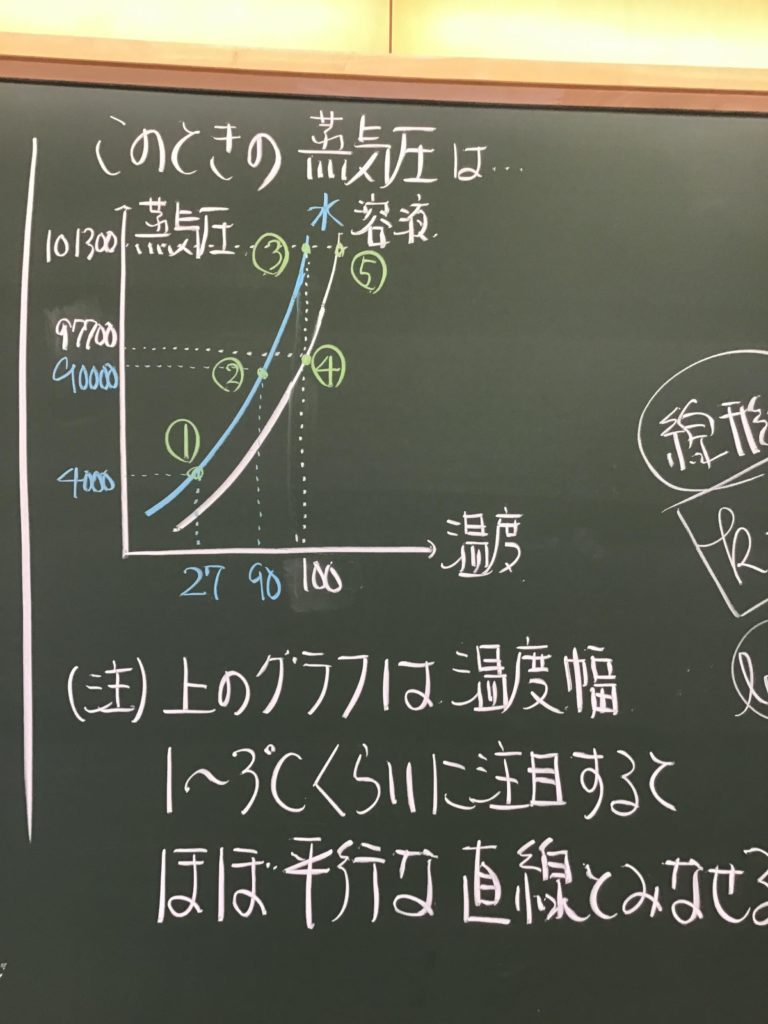 このときの 蒸気圧は…
蒸気圧
水 溶液
101300
③
⑤
97700
90000
②
④
①
4000
27 90 100
温度
線形
k
(注)上のグラフは温度幅
1〜3℃くらいに注目すると
ほぼ平行な直線とみなせる